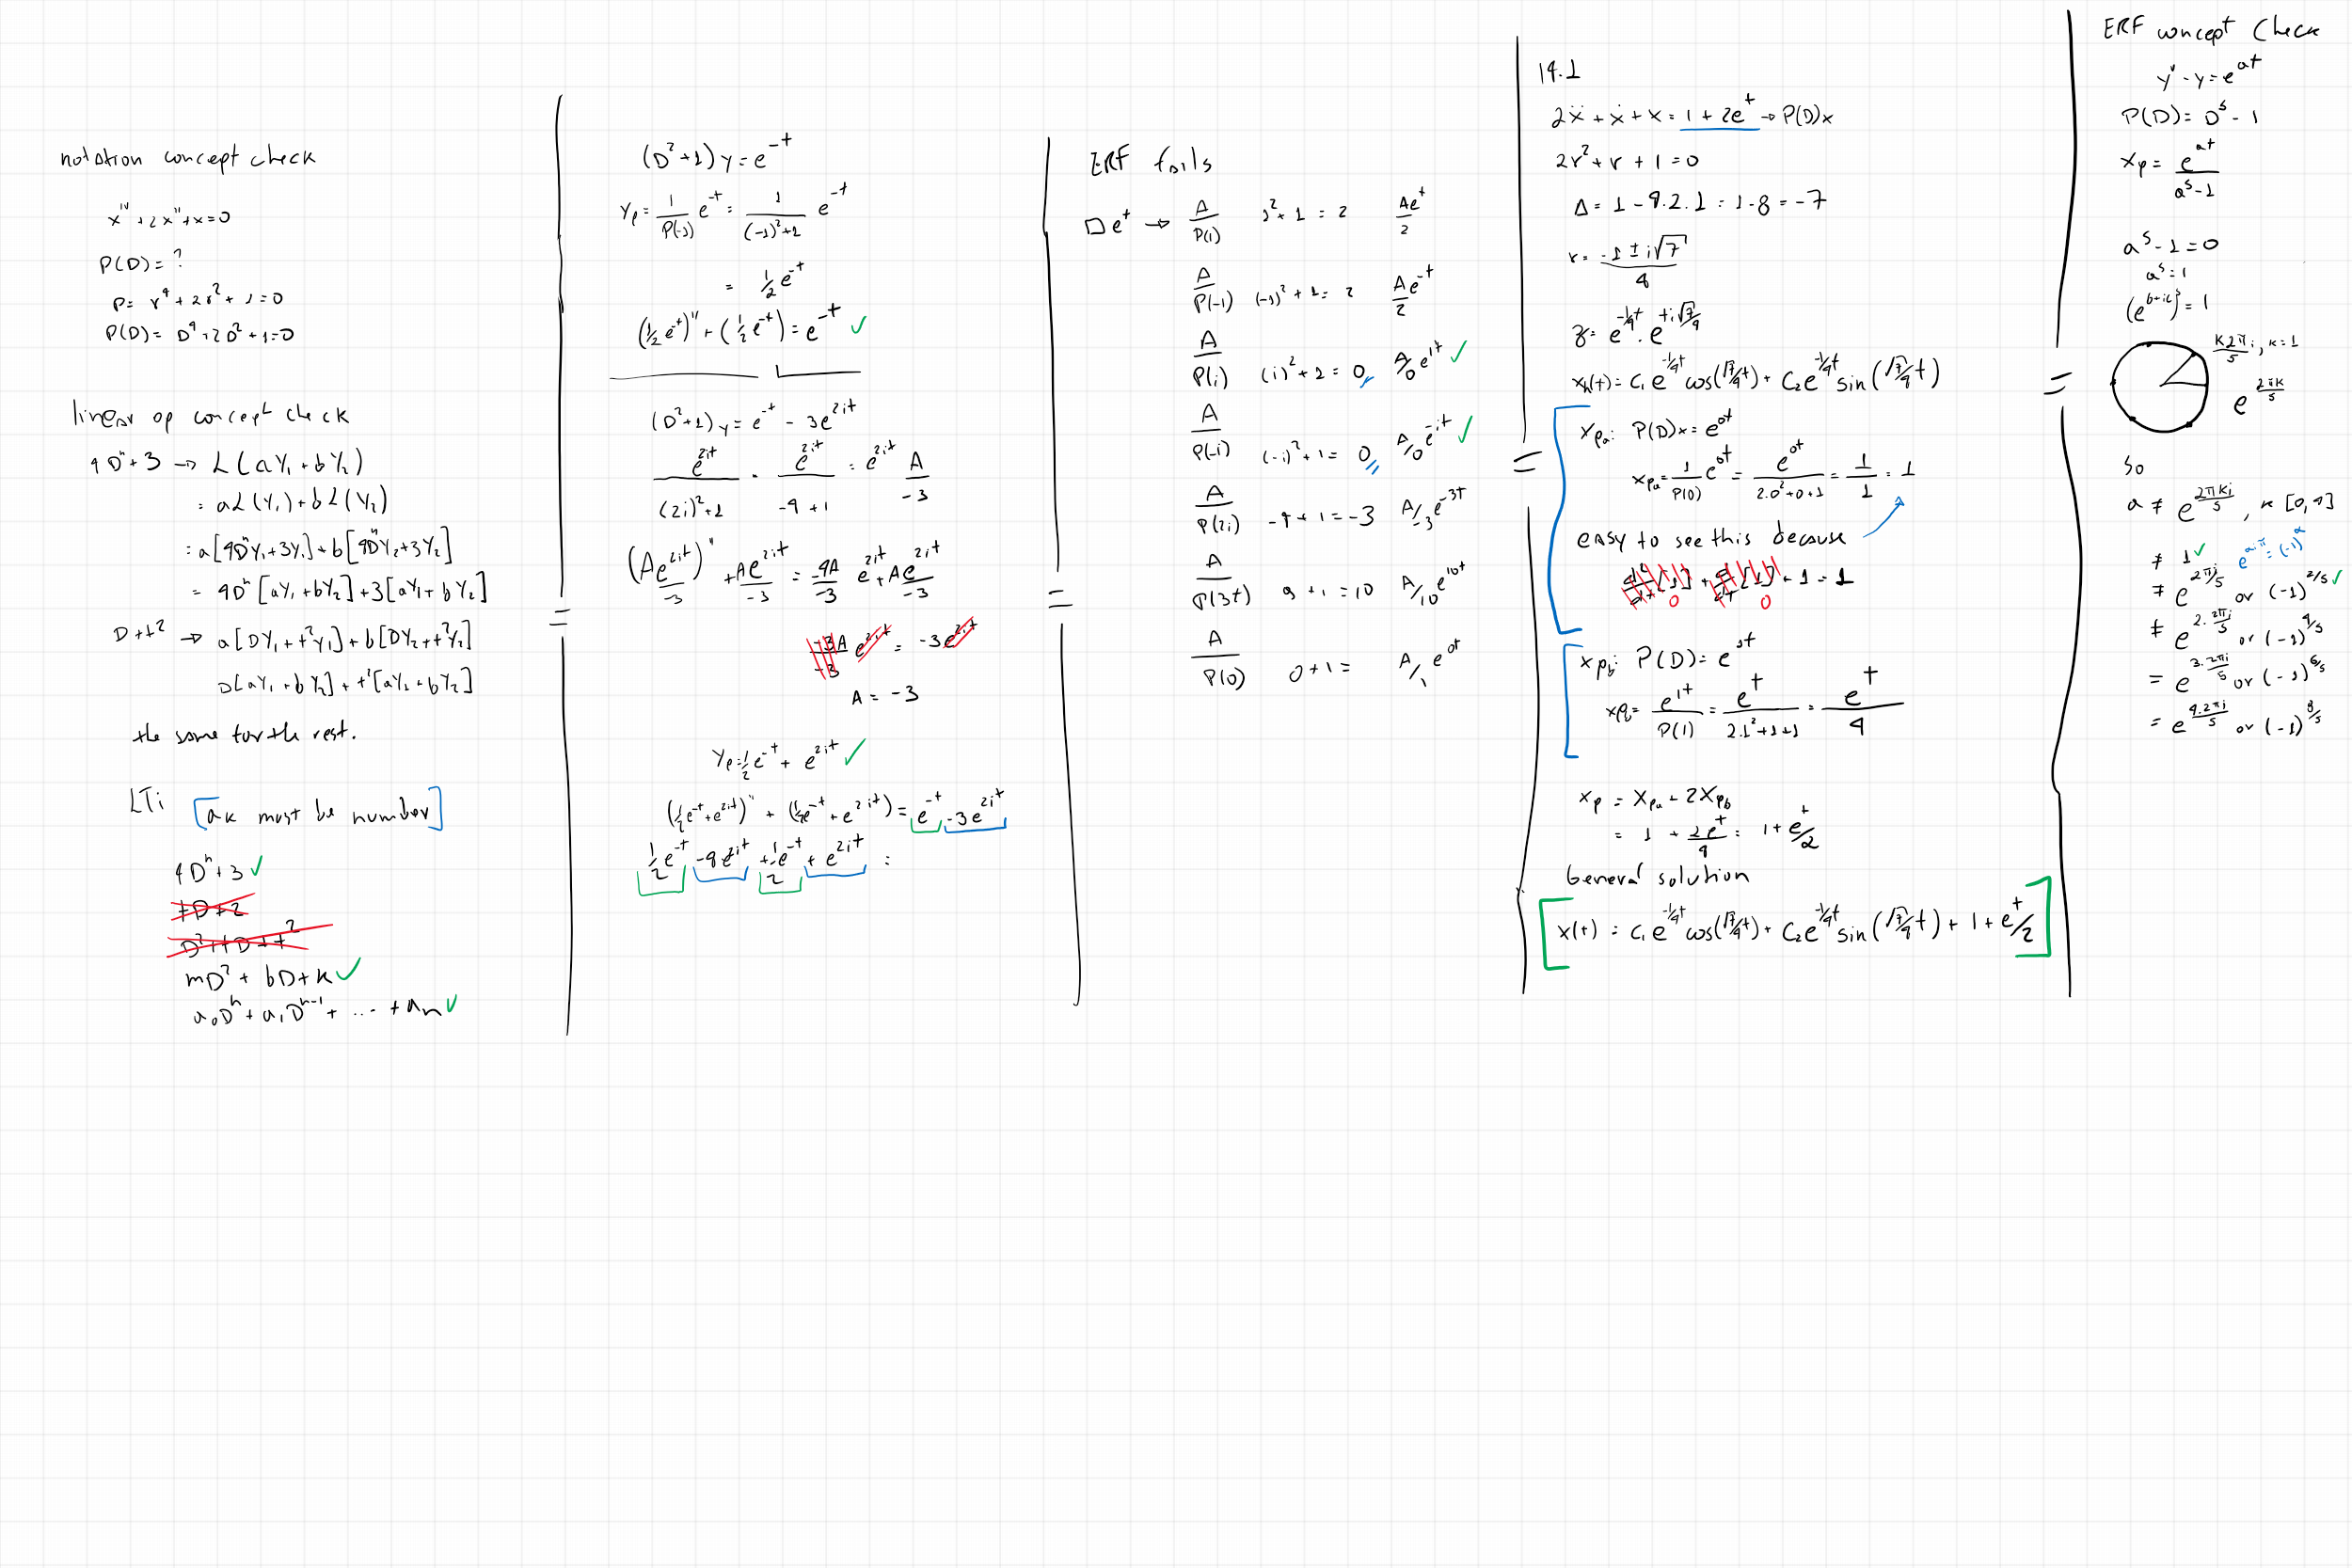 notation concept check
x'''' + 2x'' + x = 0
P(D) = ?
P = r⁴ + 2r² + 1 = 0
P(D) = D⁴ + 2D² + 1 = 0
linear op concept check
4Dⁿ + 3 → L(aY₁ + bY₂)
= aL(Y₁) + bL(Y₂)
= a[4DⁿY₁ + 3Y₁] + b[4DⁿY₂ + 3Y₂]
= 4Dⁿ[aY₁ + bY₂] + 3[aY₁ + bY₂]
D + t² → a[DY₁ + t²Y₁] + b[DY₂ + t²Y₂]
D[aY₁ + bY₂] + t²[aY₁ + bY₂]
the same for the rest.
LTi [aₖ must be number]
4Dⁿ + 3 ✓
tD + 2
D² + tD + t²
mD² + bD + k ✓
a₀Dⁿ + a₁Dⁿ⁻¹ + ... + aₙ ✓
(D² + 1) y = e^-t
Yₚ = 1/P(-1) e^-t = 1/((-1)² + 1) e^-t
= 1/2 e^-t
(1/2 e^-t)'' + (1/2 e^-t) = e^-t ✓
(D² + 1) y = e^-t - 3e^2it
e^2it/((2i)² + 1) = e^2it/(-4 + 1) = e^2it A/-3
(Ae^2it/-3)'' + Ae^2it/-3 = -4A/-3 e^2it + Ae^2it/-3
-3A/-3 e^2it = -3e^2it
A = -3
Yₚ = 1/2 e^-t + e^2it ✓
(1/2 e^-t + e^2it)'' + (1/2 e^-t + e^2it) = e^-t - 3e^2it
1/2 e^-t - 4e^2it + 1/2 e^-t + e^2it =
ERF fails
De^t → A/P(1) 1² + 1 = 2 Ae^t/2
A/P(-1) (-1)² + 1 = 2 A/2 e^-t
A/P(i) (i)² + 1 = 0, A/0 e^it ✓
A/P(-i) (-i)² + 1 = 0, A/0 e^-it ✓
A/P(2i) -4 + 1 = -3 A/-3 e^-3t
A/P(3t) 9 + 1 = 10 A/10 e^10t
A/P(0) 0 + 1 = A/1 e^0t
14.1
2ẍ + ẋ + x = 1 + 2e^t → P(D)x
2r² + r + 1 = 0
Δ = 1 - 4.2.1 = 1 - 8 = -7
r = (-1 ± i√7)/4
z = e^-1/4t . e^+i√7/4
xₕ(t) = C₁e^-1/4t cos(√7/4 t) + C₂e^-1/4t sin(√7/4 t)
xₚₐ: P(D)x = e^0t
xₚₐ = 1/P(0) e^0t = e^0t/(2.0² + 0 + 1) = 1/1 = 1
easy to see this because
d²/dt[1] + d/dt[1] + 1 = 1
0 0
xₚb: P(D) = e^1t
xₚb = e^1t/P(1) = e^t/(2.1² + 1 + 1) = e^t/4
xₚ = xₚₐ + 2xₚb
= 1 + 2e^t/4 = 1 + e^t/2
General solution
x(t) = C₁e^-1/4t cos(√7/4 t) + C₂e^-1/4t sin(√7/4 t) + 1 + e^t/2
ERF concept check
y⁵ - y = e^at
P(D) = D⁵ - 1
xₚ = e^at/(a⁵ - 1)
a⁵ - 1 = 0
a⁵ = 1
(e^b+ic)⁵ = 1
k2πi/5, k = 1
e^2πk/5
So
a ≠ e^2πki/5, k [0,4]
≠ 1 ✓ e^aiπ = (-1)^a
≠ e^2πi/5 or (-1)^2/5 ✓
≠ e^2.2πi/5 or (-1)^4/5
= e^3.2πi/5 or (-1)^6/5
= e^4.2πi/5 or (-1)^8/5